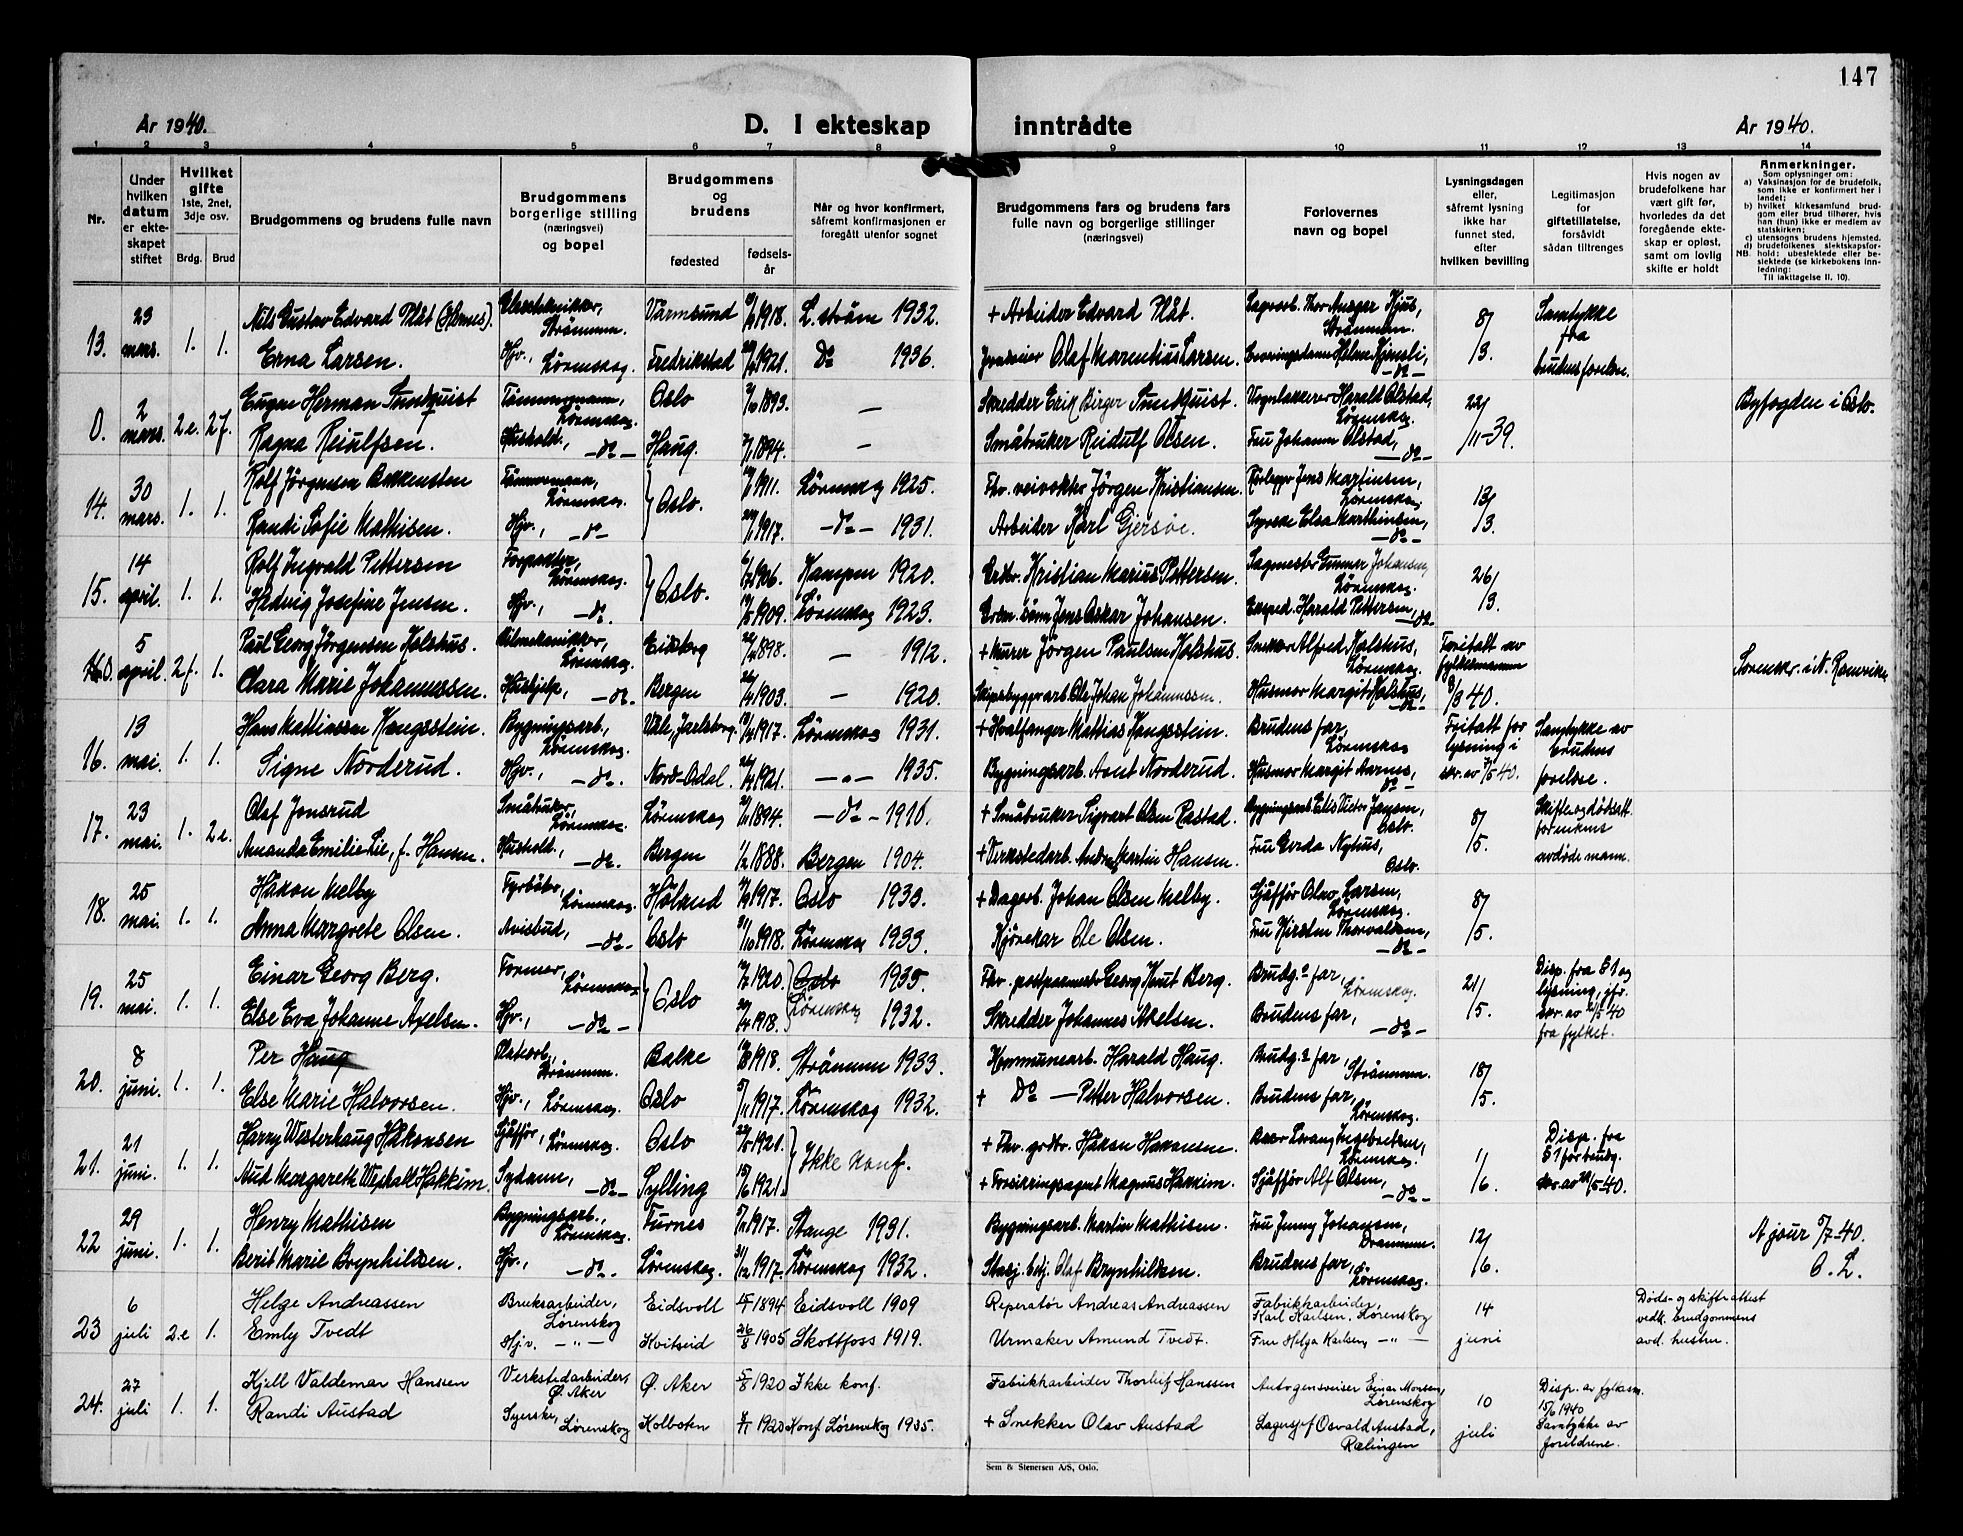 147
År 1940.
D. I ekteskap inntrådte
År 1940.
1 2 3 4 5 6 7 8 9 10 11 12 13 14
Nr.
Under hvilken datum er ekteskapet stiftet
Hvilket gifte 1ste, 2net, 3dje osv.
Brdg. Brud
Brudgommens og brudens fulle navn
Brudgommens borgerlige stilling (næringsvei) og bopel
Brudgommens og brudens
fødested
fødselsår
Når og hvor konfirmert, såfremt konfirmasjonen er foregått utenfor sognet
Brudgommens fars og brudens fars fulle navn og borgerlige stillinger (næringsvei)
Forlovernes navn og bopel
Lysningsdagen eller, såfremt lysning ikke har funnet sted, efter hvilken bevilling
Legitimasjon for giftetillatelse, forsåvidt sådan tiltrenges
Hvis nogen av brudefolkene har vært gift før, hvorledes da det foregående ekteskap er opløst, samt om lovlig skifte er holdt
Anmerkninger.
Som oplysninger om:
a) Vaksinasjon for de brudefolk, som ikke er konfirmert her i landet;
b) hvilket kirkesamfund brudgom eller brud tilhører, hvis han (hun) ikke er medlem av statskirken;
c) utensogns brudens hjemsted.
d) brudefolkenes slektskapsforhold: ubeslektede eller beslektede (se kirkebokens innledning:
NB. Til iakttagelse II. 10).
13. 23 mars. 1. 1. Nils Gustav Edvard Plåt (Hemnes). Strømmen. Värmsund 1918. L.strøm 1932. + Arbeider Edvard Plåt. Strømmen. 8/3. Samtykke fra brudens foreldre.
Erna Larsen. Hjv., Lørenskog. Fredrikstad 1921. Do 1936. Olaf Marentius Larsen. -do-
0. 2 mars. 2 e. 2 f. Eugen Herman Sundquist Tømmermann, Lørenskog. Oslo 1893. — Skredder Erik Birger Sundquist. Vognlakkerer Harald Olstad, Lørenskog. 22/11-39. Byfogden i Oslo.
Ragna Reiulfsen. Hushold., -do- Haug. 1894. — Småbruker Reidulf Olsen. Fru Johanne Olstad, -do-
14. 30 mars. 1. 1. Rolf Jörgensen Bakkensten Tömmermann, Lørenskog. Oslo. 1911. Lørenskog 1925. Fhv. veivokter Jörgen Kristiansen. Jens Martinsen, Lørenskog. 13/3.
Randi Sofie Mathisen. Hjv., -do- 1917. -do- 1931. Arbeider Karl Gjersøe. Syerske Elsa Marthinsen, -do-
15. 14 april. 1. 1. Rolf Ingvald Pettersen Lørenskog. Oslo. 1906. Kampen 1920. Kristian Marius Pettersen. Gunnar Johansen, Lørenskog. 26/3.
Hedvig Josefine Jensen. Hjv., -do. 1909. Lørenskog 1923. Jens Oskar Johansen. Eksped. Harald Pettersen, -do-
0. 5 april. 2 f. 1. Paul Georg Jørgensen Holshus. Bilmekaniker, Lørenskog. Eidsberg 1898. — 1912. + Murer Jörgen Paulsen Holshus. Snekker Alfred Holshus, Lørenskog. Fritatt av fylkesmannen 8/3 40. Sorenskr. i N. Romerike
Clara Marie Johannessen. Hushjelp, -do. Bergen 1903. — 1920. Skipsbyggerarb. Ole Johan Johannessen. Husmor Margit Holshus, -do-
16. 13 mai. 1. 1. Hans Mathiassen Haugsstein. Bygningsarb., Lørenskog. Våle, Jarlsberg. 1917. Lørenskog 1931. + Hvalfanger Mathias Haugsstein. Brudens far, Lørenskog Fritatt for lysning i skr. av 7/5 40. Samtykke av brudens foreldre.
Signe Norderud. Hjv., -do. Nord-Odal. 1921. -„- 1935. Bygningsarb. Arnt Norderud. Husmor Margit Aarnes, do-
17. 23 mai. 1. 2 e. Olaf Jonsrud Småbruker, Lørenskog. Lørenskog 1894. -do- 1910. + Småbruker Sigvart Olsen Rastad. Oslo. 8/5. Skifte og dødsatt. for enkens avdøde mann.
Amanda Emilie Lie, f. Hansen. Hushold., -do. Bergen 1888. Bergen 1904. + Verkstedarb. Andreas Martin Hansen. Fru Gerda Nyhus, Oslo.
18. 25 mai. 1. 1. Håkon Melby Fyrböter, Lørenskog. Høland 1917. Oslo 1933. + Dagarb. Johan Olsen Melby. Sjåffør Olav Larsen, Lørenskog. 8/5.
Anna Margrete Olsen. Avisbud, -do- Oslo 1918. Lørenskog 1933. Kjørekar Ole Olsen. Fru Kirsten Thorvaldsen, -do-
19. 25 mai. 1. 1. Einar Georg Berg. Former, Lørenskog Oslo 1920. Oslo 1935. Fhv. postpermester Georg Knut Berg. Brudg.s far, Lørenskog. 21/5. Disp. fra § 1 og lysning, jfr. skr. av 21/5 40 fra fylket.
Else Eva Johanne Axelsen. Hjv., -do- 1918. Lørenskog 1932. Skredder Johannes Axelsen. Brudens far, -do-
20. 8 juni. 1. 1. Per Haug Strømmen. Balke 1918. Strømmen 1933. Kommunearb. Harald Haug. Brudg.s far, Strømmen. 18/5.
Else Marie Halvorsen. Hjv., Lørenskog. Oslo 1917. Lørenskog 1932. + Do — Petter Halvorsen. Brudens far, Lørenskog.
21. 21 juni. 1. 1. Harry Westerhaug Håkonsen Sjåffør, Lørenskog. Oslo 1921. Ikke konf. + Fhv. grdbr. Håkon Hakonsen. Lørenskog. 11/6. Disp. fra § 1 for brudg. skr. av 29/5-40.
Aud Margareth Westvall Hakkim. Sydame, -do- Sylling 15/6 1921. + Forsikringsagent Magnus Hakkim. Sjåffør Alf Olsen, -do-
22 29 juni. 1. 1. Henry Mathisen Bygningsarb., Lørenskog. Furnes 1917. Stange 1931. Bygningsarb. Martin Mathisen. Fru Jenny Johansen, Drammen. 12/6. A jour 5/7-40. O. L.
Berit Marie Brynhildsen. Hjv., -do-. Lørenskog. 31/12 1917. Lørenskog 1932. Stasj. betj. Olaf Brynhildsen. Brudens far, Lørenskog.
23 6 juli 2 e 1. Helge Andreassen Bruksarbeider, Lørenskog Eidsvoll 1894 Eidsvoll 1909 Reperatør Andreas Andreassen Fabrikkarbeider, Karl Karlsen, Lørenskog 14 juni Døds- og skifteattest vedk. brudgommens avd. hustru.
Emly Tvedt Hjv. -„- Kvitseid 26/8 1905 Skotfoss 1919. Urmaker Amund Tvedt. Fru Helga Karlsen, -„-
24. 27 juli 1. 1. Kjell Valdemar Hansen Verkstedarbeider, Ø. Aker Ø. Aker 5/8 1920 Ikke konf. Fabrikkarbeider Thorleif Hanssen Autogensveiser Einar Monsen, Lørenskog 10 juli Disp. av fylkesm. 15/6 1940 Samtykke av foreldrene.
Randi Austad Syerske, Lørenskog Kolbotn 1920 Konf. Lørenskog 1935. + Snekker Olav Austad Lagersjef Osvald Austad, Rælingen
Sem & Stenersen A/S, Oslo.